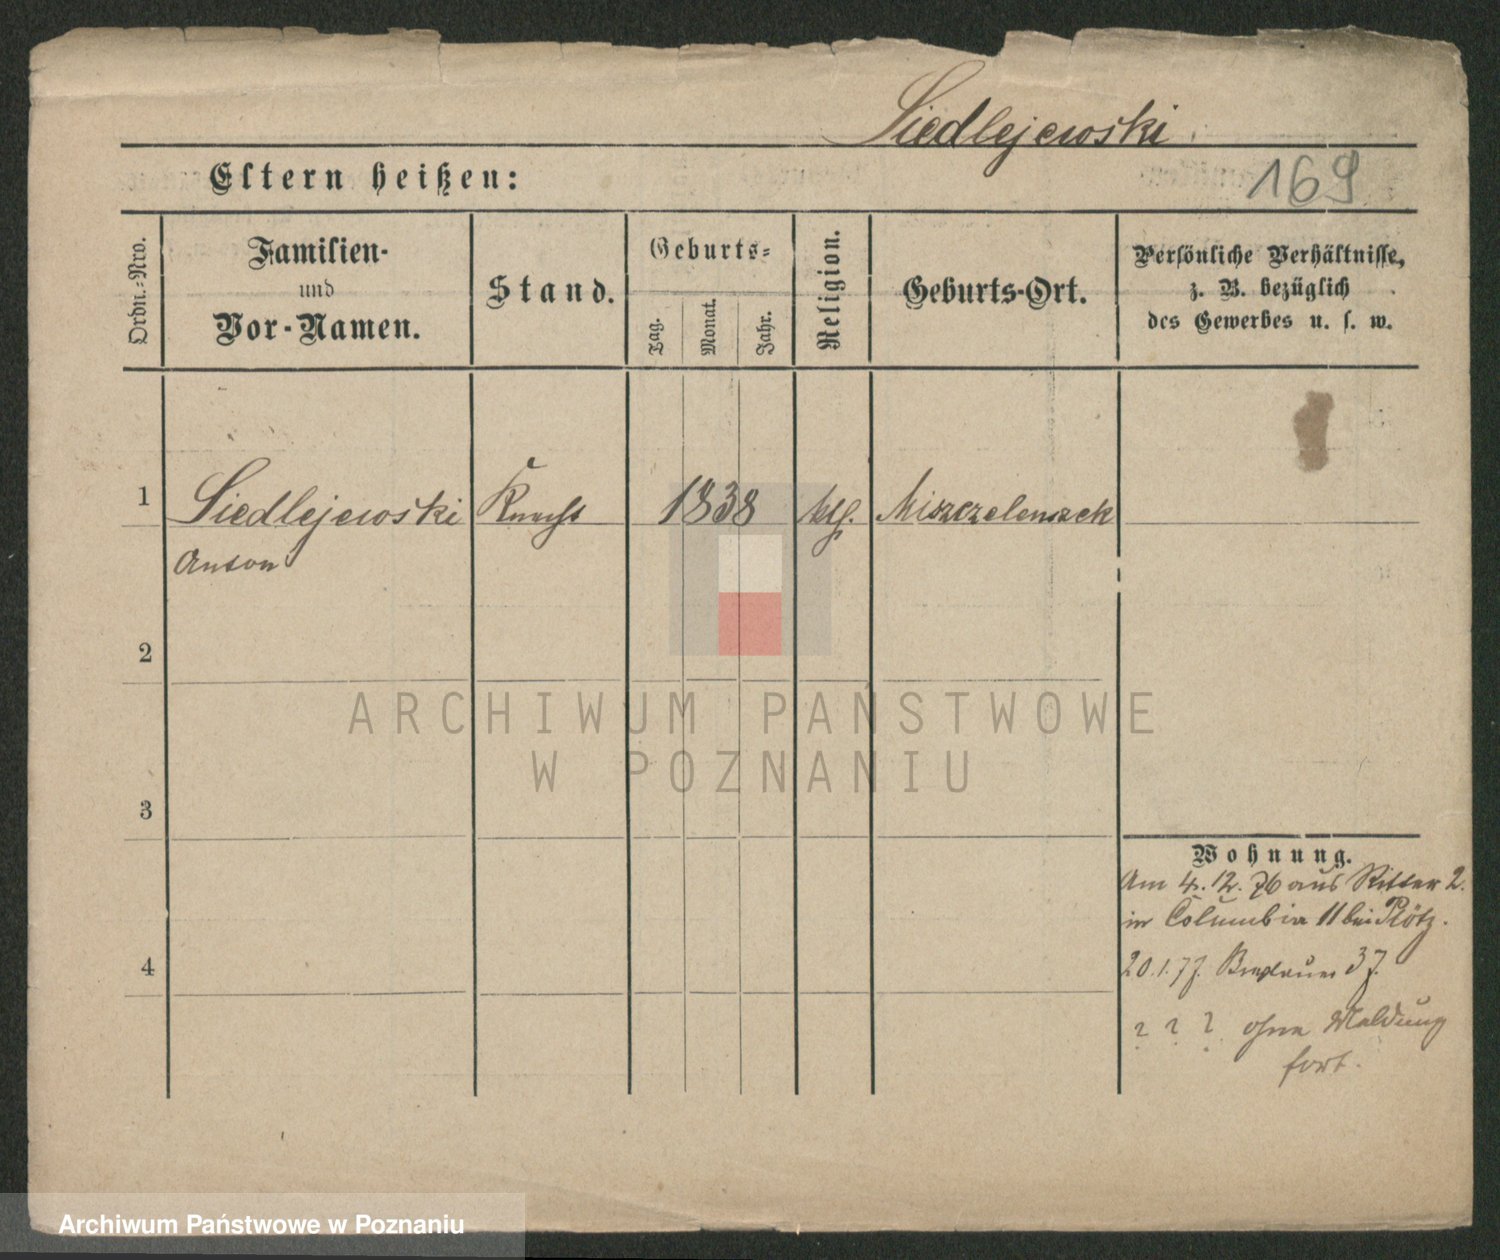 Siedlejewski
Eltern heißen:
169
Ordn.-Nro.
Familien-
und
Vor-Namen.
Stand.
Geburts-
Tag.
Monat.
Jahr.
Religion.
Geburts-Ort.
Persönliche Verhältnisse,
z. B. bezüglich
des Gewerbes u. s. w.
1
Siedlejewski Knecht 1838 kth. Miszczelenszek
Anton
2
3
4
Wohnung.
Am 4. 12. 76 aus Ritter 2.
in Columbia 11 bei Plötz.
20.1.77. Breslauer 37.
? ? ? ohne Meldung
fort.
ARCHIWUM PAŃSTWOWE
W POZNANIU
Archiwum Państwowe w Poznaniu